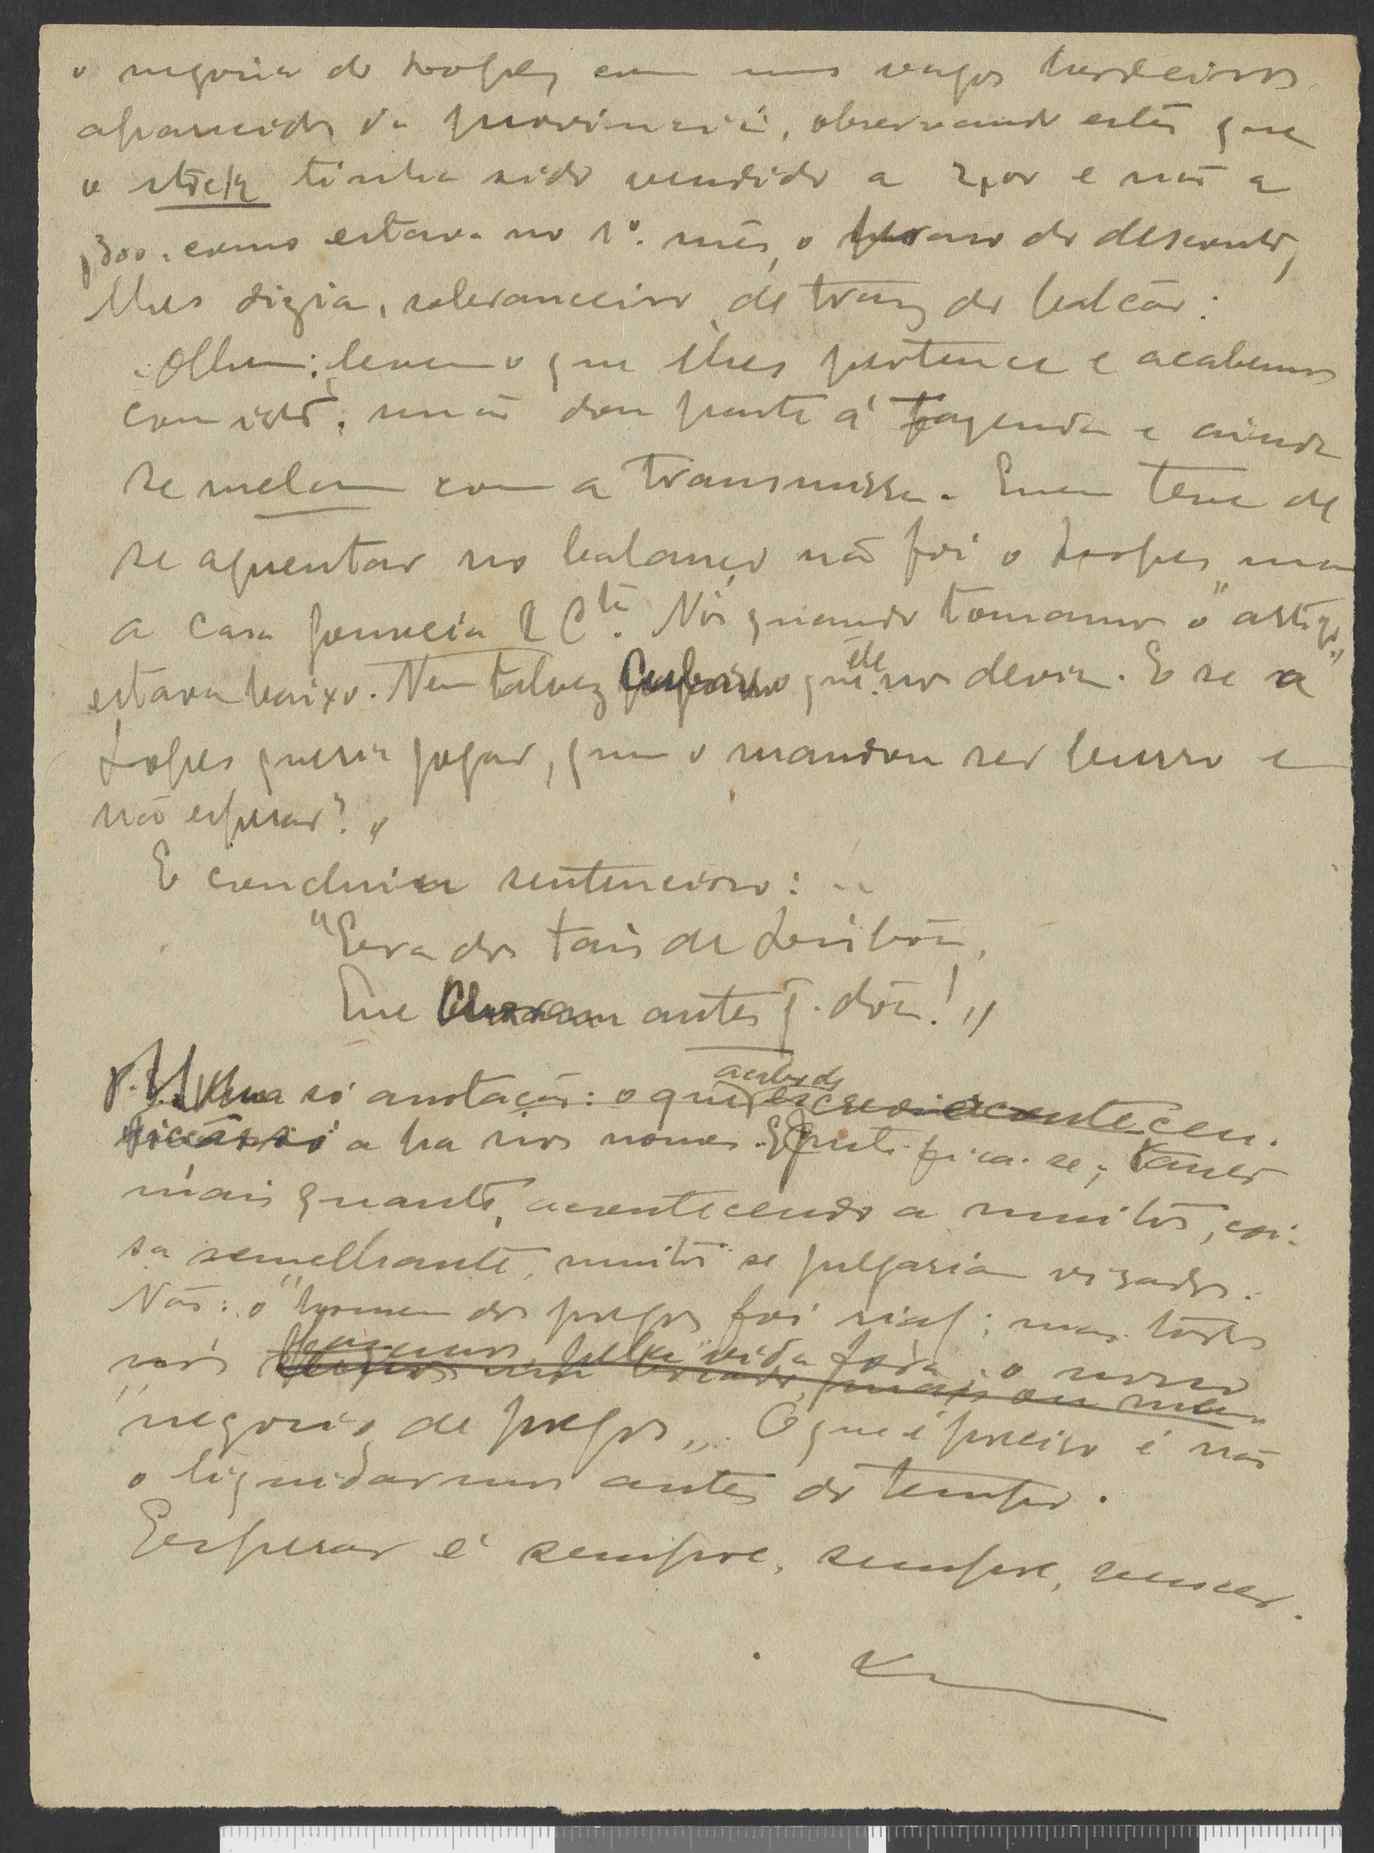 o negocio do Lopes, com uns vagos herdeiros
aparecidos da provincia, observando estes que
o stock tinha sido vendido a 2$00 e não a
$300, como estava no 1º. mês, o do desconto,
lhes dizia, sobranceiro, de traz do balcão:
Olhem: levem o que lhes pertence e acabemos
com isto; senão dou parte á fazenda e ainda
se melam com a transmissão. Quem teve de
se aguentar no balanço não foi o Lopes, mas
a casa &amp; Ctª. Nós quando tomamos o "artigo"
estava baixo. Nem talvez o que ele nos devia. E se o
Lopes queria jogar, quem o mandou ser burro e
não esperar?"
E concluiu sentencioso:
"Era dos tais de Lisboa,
Que choram antes q. dôa!"
P.S. Uma só anotação: o que acabo de
a ha nos nomes. E justifica-se; tanto
mais quanto, acontecendo a muitos, coi-
sa semelhante, muitos se julgariam visados.
Não: o "homem dos pregos" foi ; mas todos
nós fazemos, pela vida fora, o nosso
"negocio de pregos". O que é preciso é não
o liquidarmos antes do tempo.
Esperar é sempre, sempre, vencer.